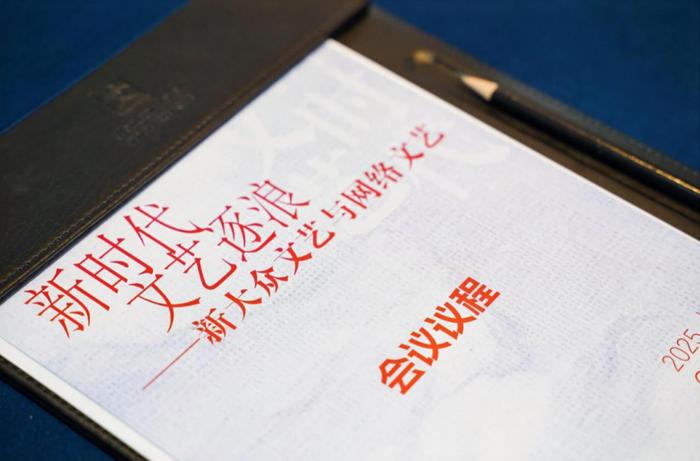 新时代
文艺逐浪
——新大众文艺与网络文艺
会议议程
2025